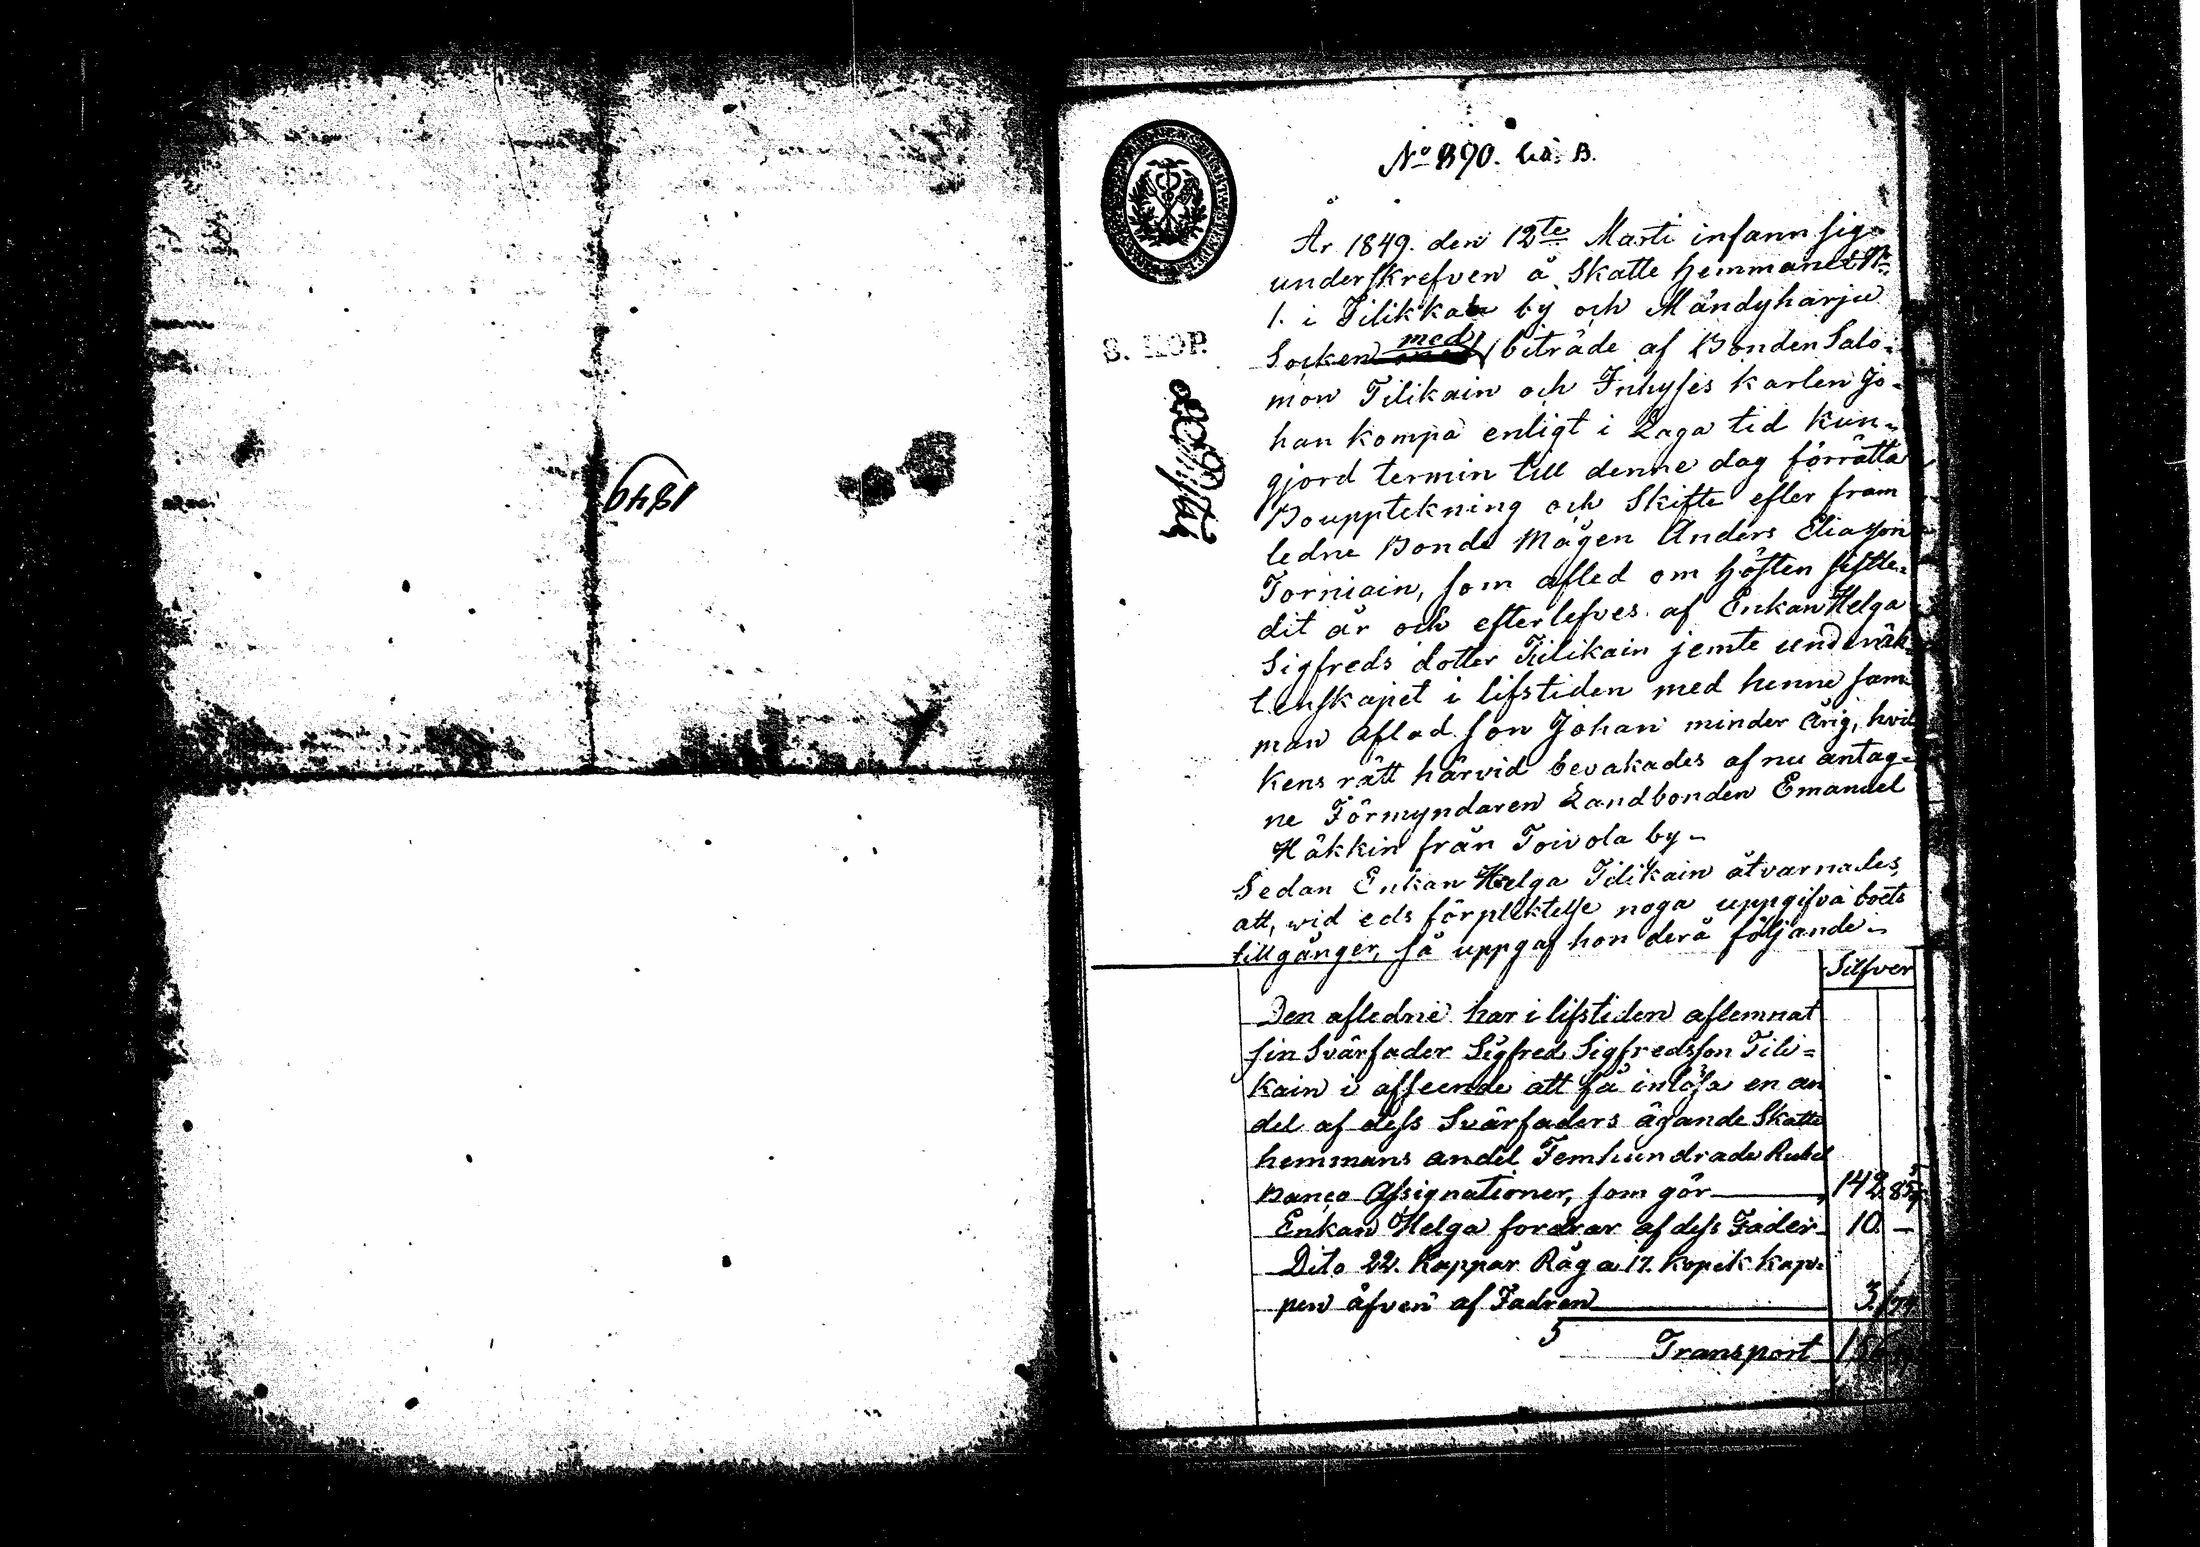 1849
No 890. Lit. B.
År 1849. den 12te Marti infann sig
underskrefven å Skatte hemmanet No
1. i Tilikka by och Mändyharju
Socken med biträde af Bonden Salo-
mon Tilikain och Inhyses karlen Jo-
han Kompa enligt i Laga tid kun-
gjord termin till denne dag förrätta
Bouppteckning och Skifte efter fram
ledne Bonde Mågen Anders Eliasson
Torniain, som afled om hösten sistle-
dit år och efterlefves af Enkan Helga
Sigfreds dotter Tilikain jemte under äk-
tenskapet i lifstiden med henne sam-
man aflad son Johan minder årig, hvil
kens rätt härvid bevakades af nu antag-
ne Förmyndaren Landbonden Emanuel
Häkkin från Toivola by -
Sedan Enkan Helga Tilikain åtvarnades,
att, wid eds förpliktelse noga uppgifva boets
tillgånger, så uppgaf hon derå följande -
Silfver
8. KOP.
Den afledne har i lifstiden aflemnat
sin Svärfader Sigfred Sigfredsson Tili-
kain i afseende att få inlösa en an
del af dess Svärfaders ägande Skatte
hemmans andel Femhundrade Rubel
Banco Assignationer, som gör 142. 85 5/7
Enkan Helga fordrar af dess Fader 10. -
Dito 22. Kappar Råg a 17. kopek kap-
pen äfven af Fadren 3. 74
Transport